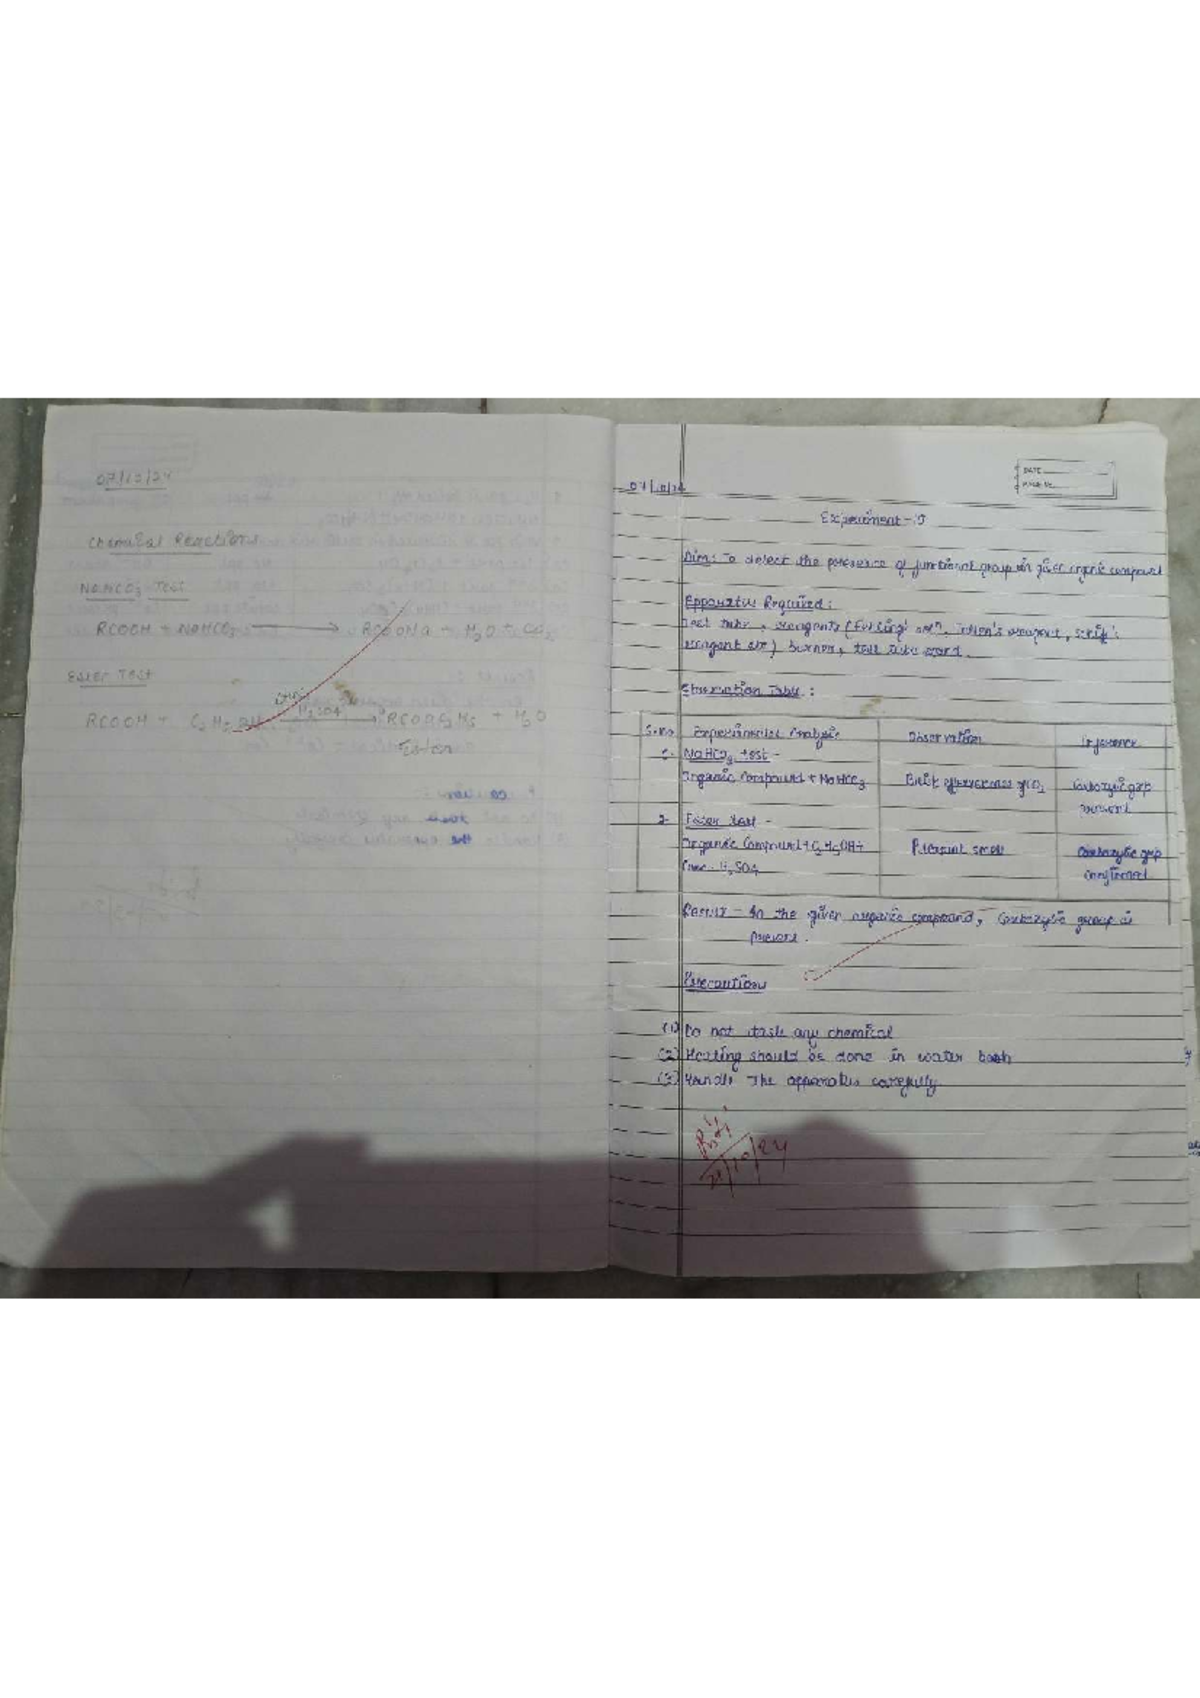 07/10/24
Chemical Reactions
NaHCO3 Test
RCOOH + NaHCO3 → RCOONa + H2O + CO2
Ester Test
RCOOH + C2H5OH H2SO4 → RCOOC2H5 + H2O
Ester
DATE
07/10/24
Experiment -
Aim: To detect the presence of functional group in given organic compound
Apparatus Required:
Test tube, reagents (Fehling's soln, Tollen's reagent, Schiff's
reagent etc) burner, test tube stand.
Observation Table:
S.No Experimental Analysis Observation Inference
1. NaHCO3 test -
Organic Compound + NaHCO3 Brisk effervescence of CO2 Carboxylic grp
present
2. Ester test -
Organic Compound + C2H5OH + Pleasant smell Carboxylic grp
Conc. H2SO4 confirmed
Result - In the given organic compound, Carboxylic group is
present.
Precautions
(1) Do not taste any chemical
(2) Heating should be done in water bath
(3) Handle The apparatus carefully
21/10/24